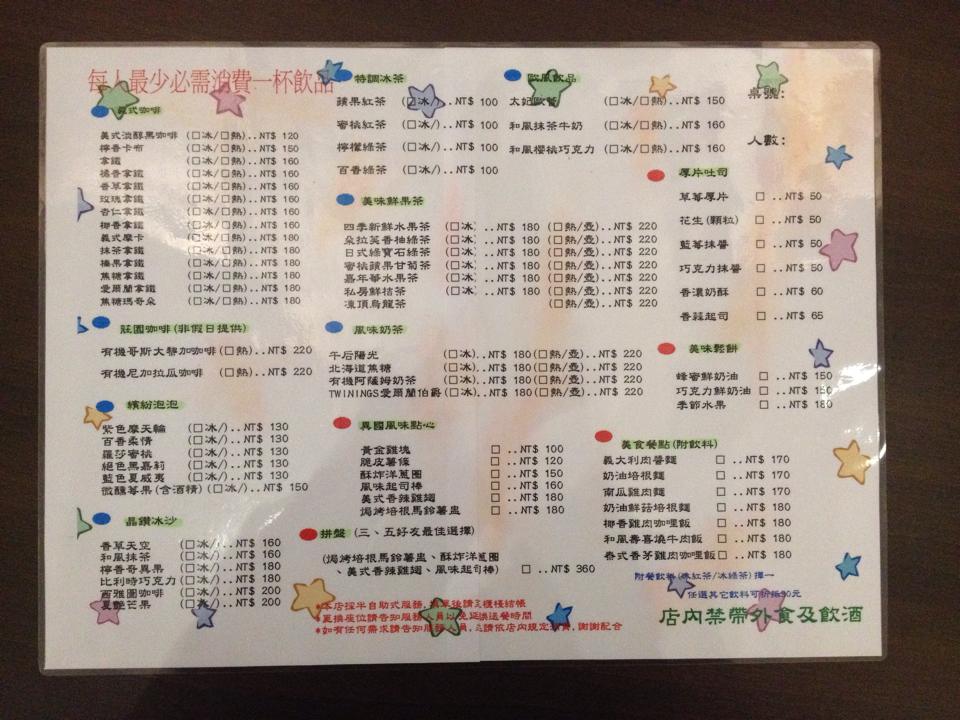 每人最少必需消費一杯飲品
義式咖啡
美式淡醇黑咖啡 (□冰/□熱)..NT$ 120
檸香卡布 (□冰/□熱)..NT$ 150
拿鐵 (□冰/□熱)..NT$ 160
橘香拿鐵 (□冰/□熱)..NT$ 160
香草拿鐵 (□冰/□熱)..NT$ 160
玫瑰拿鐵 (□冰/□熱)..NT$ 160
杏仁拿鐵 (□冰/□熱)..NT$ 160
椰香拿鐵 (□冰/□熱)..NT$ 160
義式摩卡 (□冰/□熱)..NT$ 180
抹茶拿鐵 (□冰/□熱)..NT$ 180
榛果拿鐵 (□冰/□熱)..NT$ 180
焦糖拿鐵 (□冰/□熱)..NT$ 180
愛爾蘭拿鐵 (□冰/□熱)..NT$ 180
焦糖瑪奇朵 (□冰/□熱)..NT$ 180
莊園咖啡(非假日提供)
有機哥斯大黎加咖啡(□熱)..NT$ 220
有機尼加拉瓜咖啡 (□熱)..NT$ 220
繽紛泡泡
紫色摩天輪 (□冰/)..NT$ 130
百香柔情 (□冰/)..NT$ 130
羅莎蜜桃 (□冰/)..NT$ 130
絕色黑嘉莉 (□冰/)..NT$ 130
藍色夏威夷 (□冰/)..NT$ 130
微醺莓果(含酒精)(□冰/)..NT$ 150
晶鑽冰沙
香草天空 (□冰/)..NT$ 160
和風抹茶 (□冰/)..NT$ 160
檸香奇異果 (□冰/)..NT$ 180
比利時巧克力 (□冰/)..NT$ 180
西雅圖咖啡 (□冰/)..NT$ 200
夏艷芒果 (□冰/)..NT$ 200
特調冰茶
蘋果紅茶 (□冰/)..NT$ 100
蜜桃紅茶 (□冰/)..NT$ 100
檸檬綠茶 (□冰/)..NT$ 100
百香綠茶 (□冰/)..NT$ 100
美味鮮果茶
四季新鮮水果茶 (□冰)..NT$ 180 (□熱/壺)..NT$ 220
朵拉芙香柚綠茶 (□冰)..NT$ 180 (□熱/壺)..NT$ 220
日式綠寶石綠茶 (□冰)..NT$ 180 (□熱/壺)..NT$ 220
蜜桃蘋果甘菊茶 (□冰)..NT$ 180 (□熱/壺)..NT$ 220
嘉年華水果茶 (□冰)..NT$ 180 (□熱/壺)..NT$ 220
私房鮮桔茶 (□冰)..NT$ 180 (□熱/壺)..NT$ 220
凍頂烏龍茶 (□熱/壺)..NT$ 220
風味奶茶
午后陽光 (□冰)..NT$ 180(□熱/壺)..NT$ 220
北海道焦糖 (□冰)..NT$ 180(□熱/壺)..NT$ 220
有機阿薩姆奶茶 (□冰)..NT$ 180(□熱/壺)..NT$ 220
TWININGS愛爾蘭伯爵(□冰)..NT$ 180(□熱/壺)..NT$ 220
異國風味點心
黃金雞塊 □ ..NT$ 100
脆皮薯條 □ ..NT$ 120
酥炸洋蔥圈 □ ..NT$ 150
風味起司棒 □ ..NT$ 160
美式香辣雞翅 □ ..NT$ 180
焗烤培根馬鈴薯盅 □ ..NT$ 180
拼盤(三、五好友最佳選擇)
(焗烤培根馬鈴薯盅、酥炸洋蔥圈
、美式香辣雞翅、風味起司棒) □ ..NT$ 360
*本店採半自助式服務,填單後請至櫃檯結帳
*更換座位請告知服務人員以免延誤送餐時間
*如有任何需求請告知服務人員,並請依店內規定消費,謝謝配合
歐風飲品
太妃歐蕾 (□冰/□熱)..NT$ 150
和風抹茶牛奶 (□冰/□熱)..NT$ 160
和風櫻桃巧克力 (□冰/□熱)..NT$ 160
桌號:
人數:
厚片吐司
草莓厚片 □ ..NT$ 50
花生(顆粒) □ ..NT$ 50
藍莓抹醬 □ ..NT$ 50
巧克力抹醬 □ ..NT$ 50
香濃奶酥 □ ..NT$ 60
香蒜起司 □ ..NT$ 65
美味鬆餅
蜂蜜鮮奶油 □ ..NT$ 150
巧克力鮮奶油 □ ..NT$ 150
季節水果 □ ..NT$ 180
美食餐點(附飲料)
義大利肉醬麵 □ ..NT$ 170
奶油培根麵 □ ..NT$ 170
南瓜雞肉麵 □ ..NT$ 170
奶油鮮菇培根麵 □ ..NT$ 180
椰香雞肉咖哩飯 □ ..NT$ 180
和風壽喜燒牛肉飯 □ ..NT$ 180
泰式香茅雞肉咖哩飯□ ..NT$ 180
附餐飲料(冰紅茶/冰綠茶)擇一
任選其它飲料可折抵30元
店內禁帶外食及飲酒